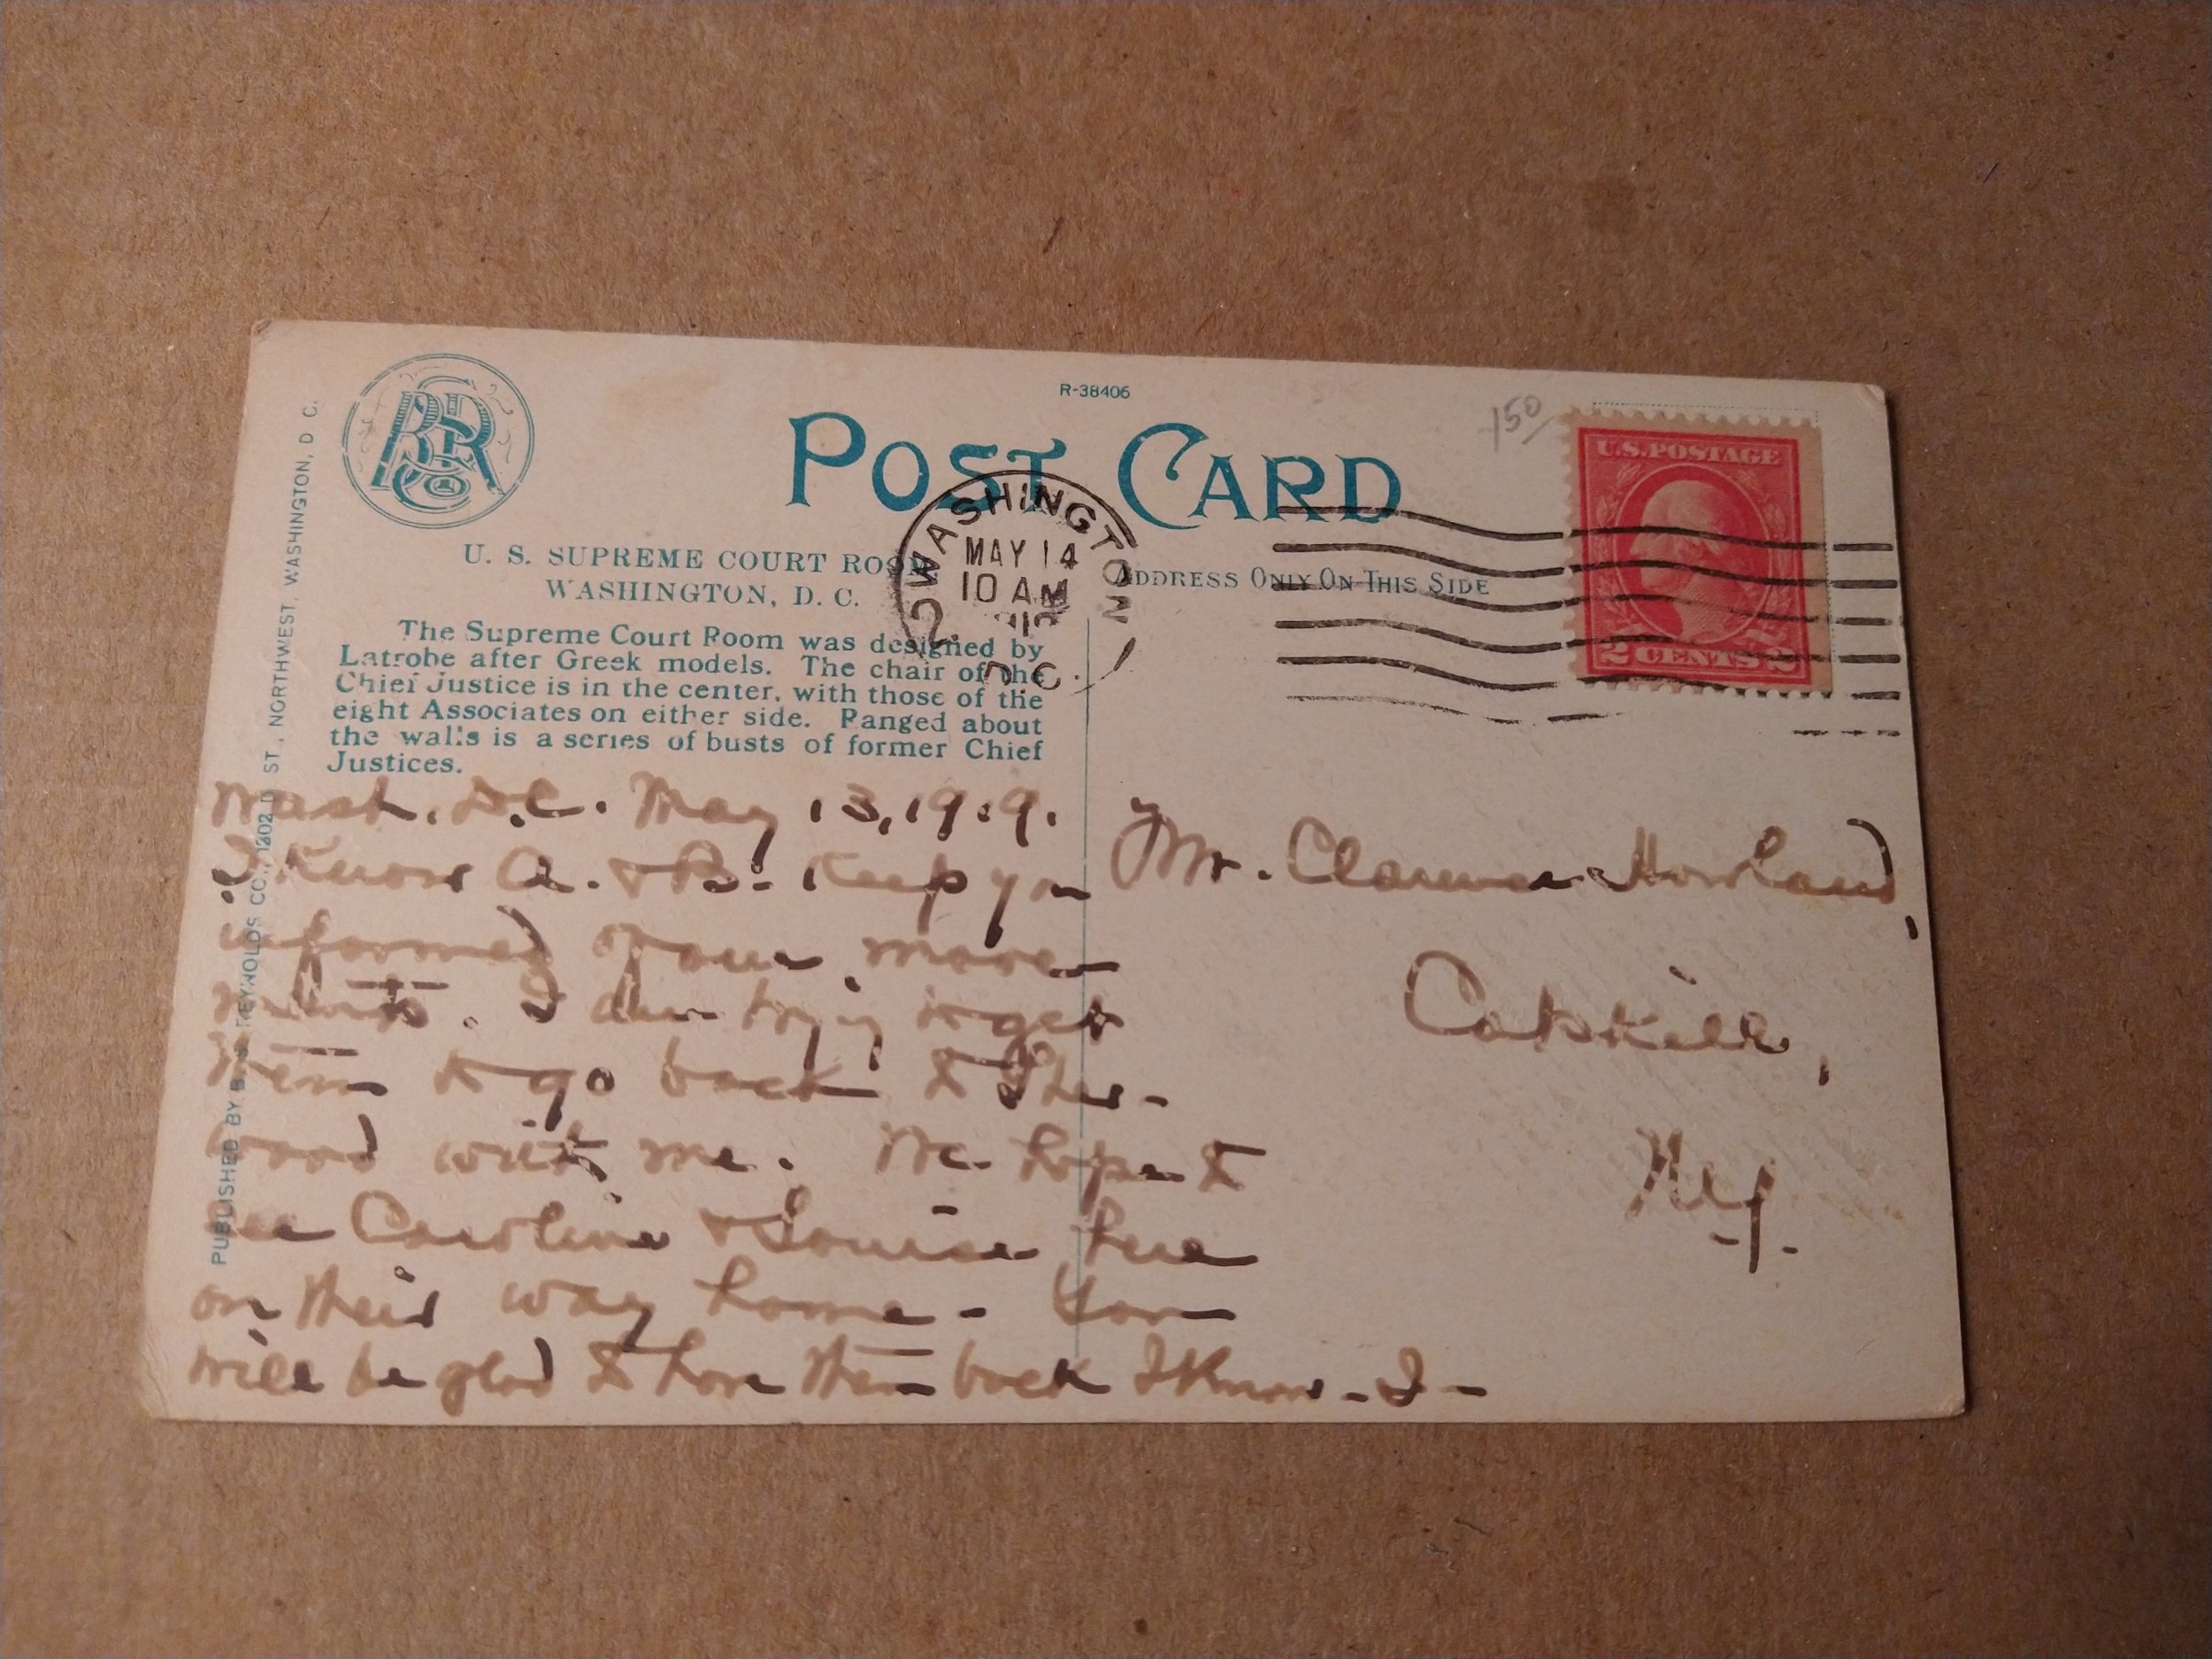 R-38406
150
POST CARD
U.S. POSTAGE
2 CENTS 2
WASHINGTON
MAY 14
10 AM
D.C.
BSR Co
U. S. SUPREME COURT ROOM
WASHINGTON, D. C.
ADDRESS ONLY ON THIS SIDE
The Supreme Court Room was designed by
Latrobe after Greek models. The chair of the
Chief Justice is in the center, with those of the
eight Associates on either side. Ranged about
the walls is a series of busts of former Chief
Justices.
PUBLISHED BY B. S. REYNOLDS CO., 1202 D ST., NORTHWEST, WASHINGTON, D C.
Wash. D.C. May 13, 1919.
I know A. & B. keep you
informed of our move-
ments. I am trying to get
them to go back to Sher-
wood with me. We hope to
see Caroline & Louise here
on their way home - You
will be glad to have them back I know - I -
Mr. Clarence Howland,
Catskill,
N.Y.